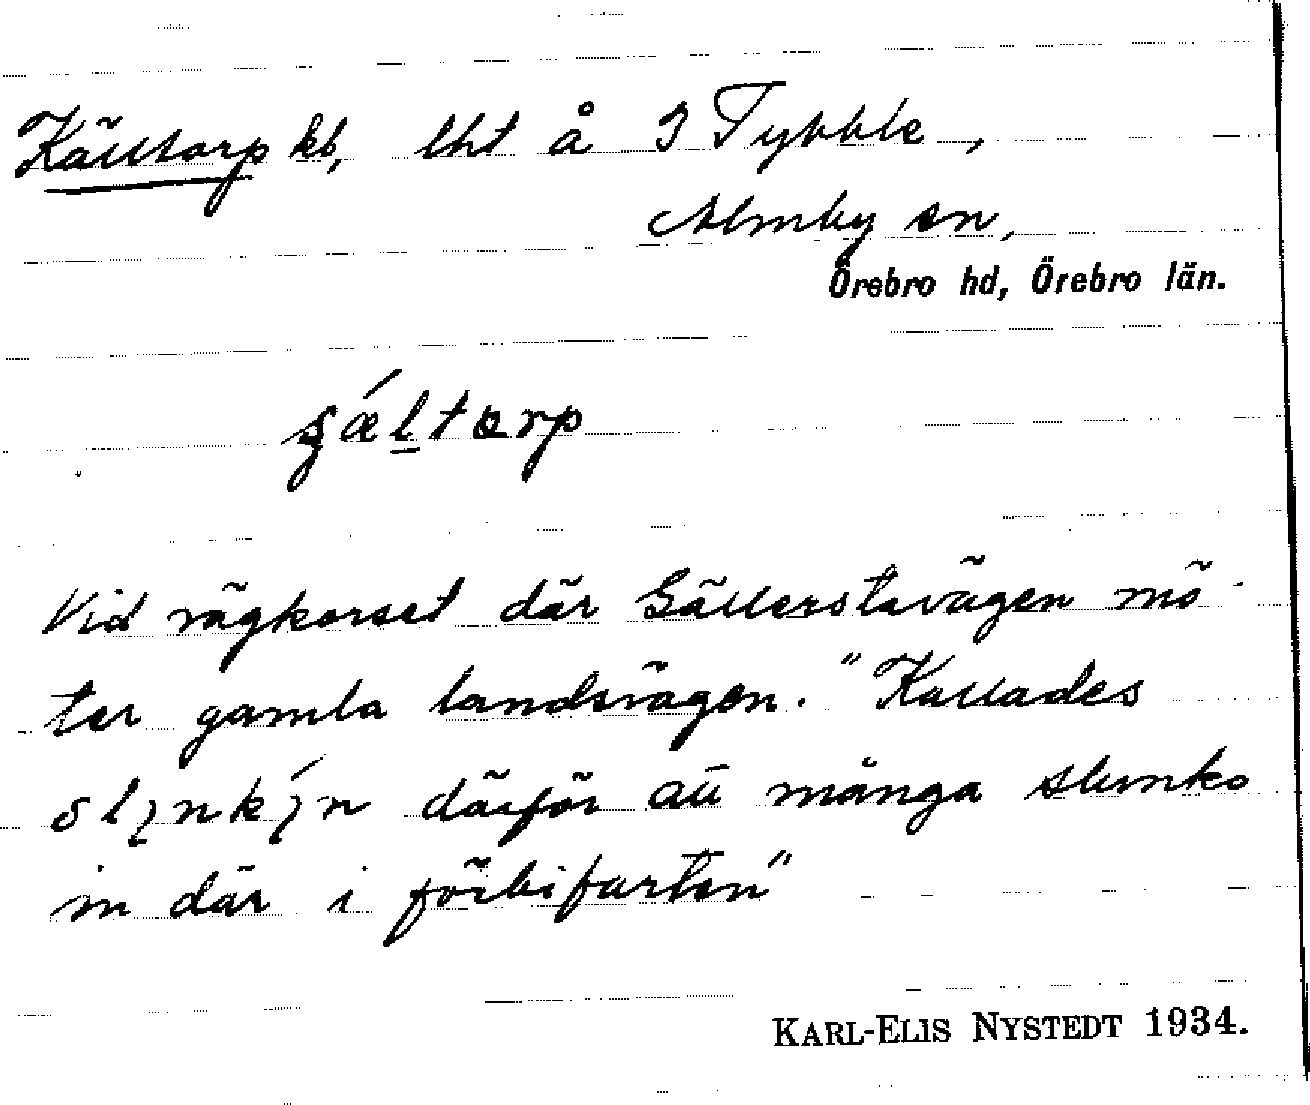 Källtorp kb, lht å 3 Tybble,
Almby sn,
Örebro hd, Örebro län.
Vid vägkorset där Gällerstavägen mö-
ter gamla landsvägen. "Kallades
därför att många slunko
in där i förbifarten"
KARL-ELIS NYSTEDT 1934.